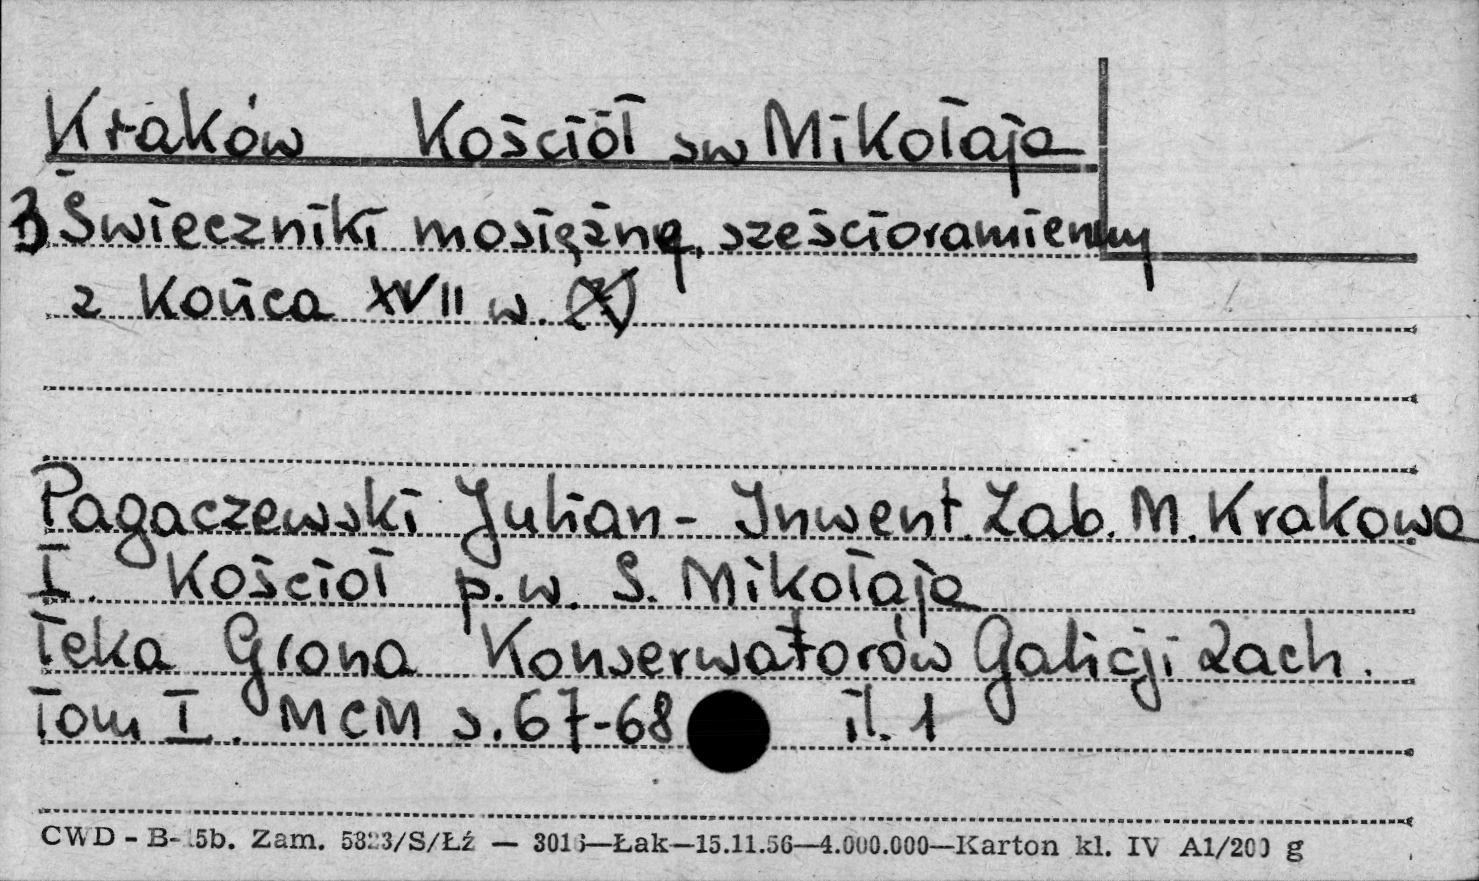 Kraków Kościół sw Mikołaja
3 Świeczniki mosiężne, sześcioramienny
z końca XVII w.
Pagaczewski Julian - Inwent. Zab. M. Krakowa
I. Kościoł p.w. S. Mikołaja
Teka Grona Konserwatorów Galicji Zach.
Tom I. MCM s. 67-68 il. 1
CWD - B-15b. Zam. 5823/S/Łź — 3016—Łak—15.11.56—4.000.000—Karton kl. IV A1/200 g